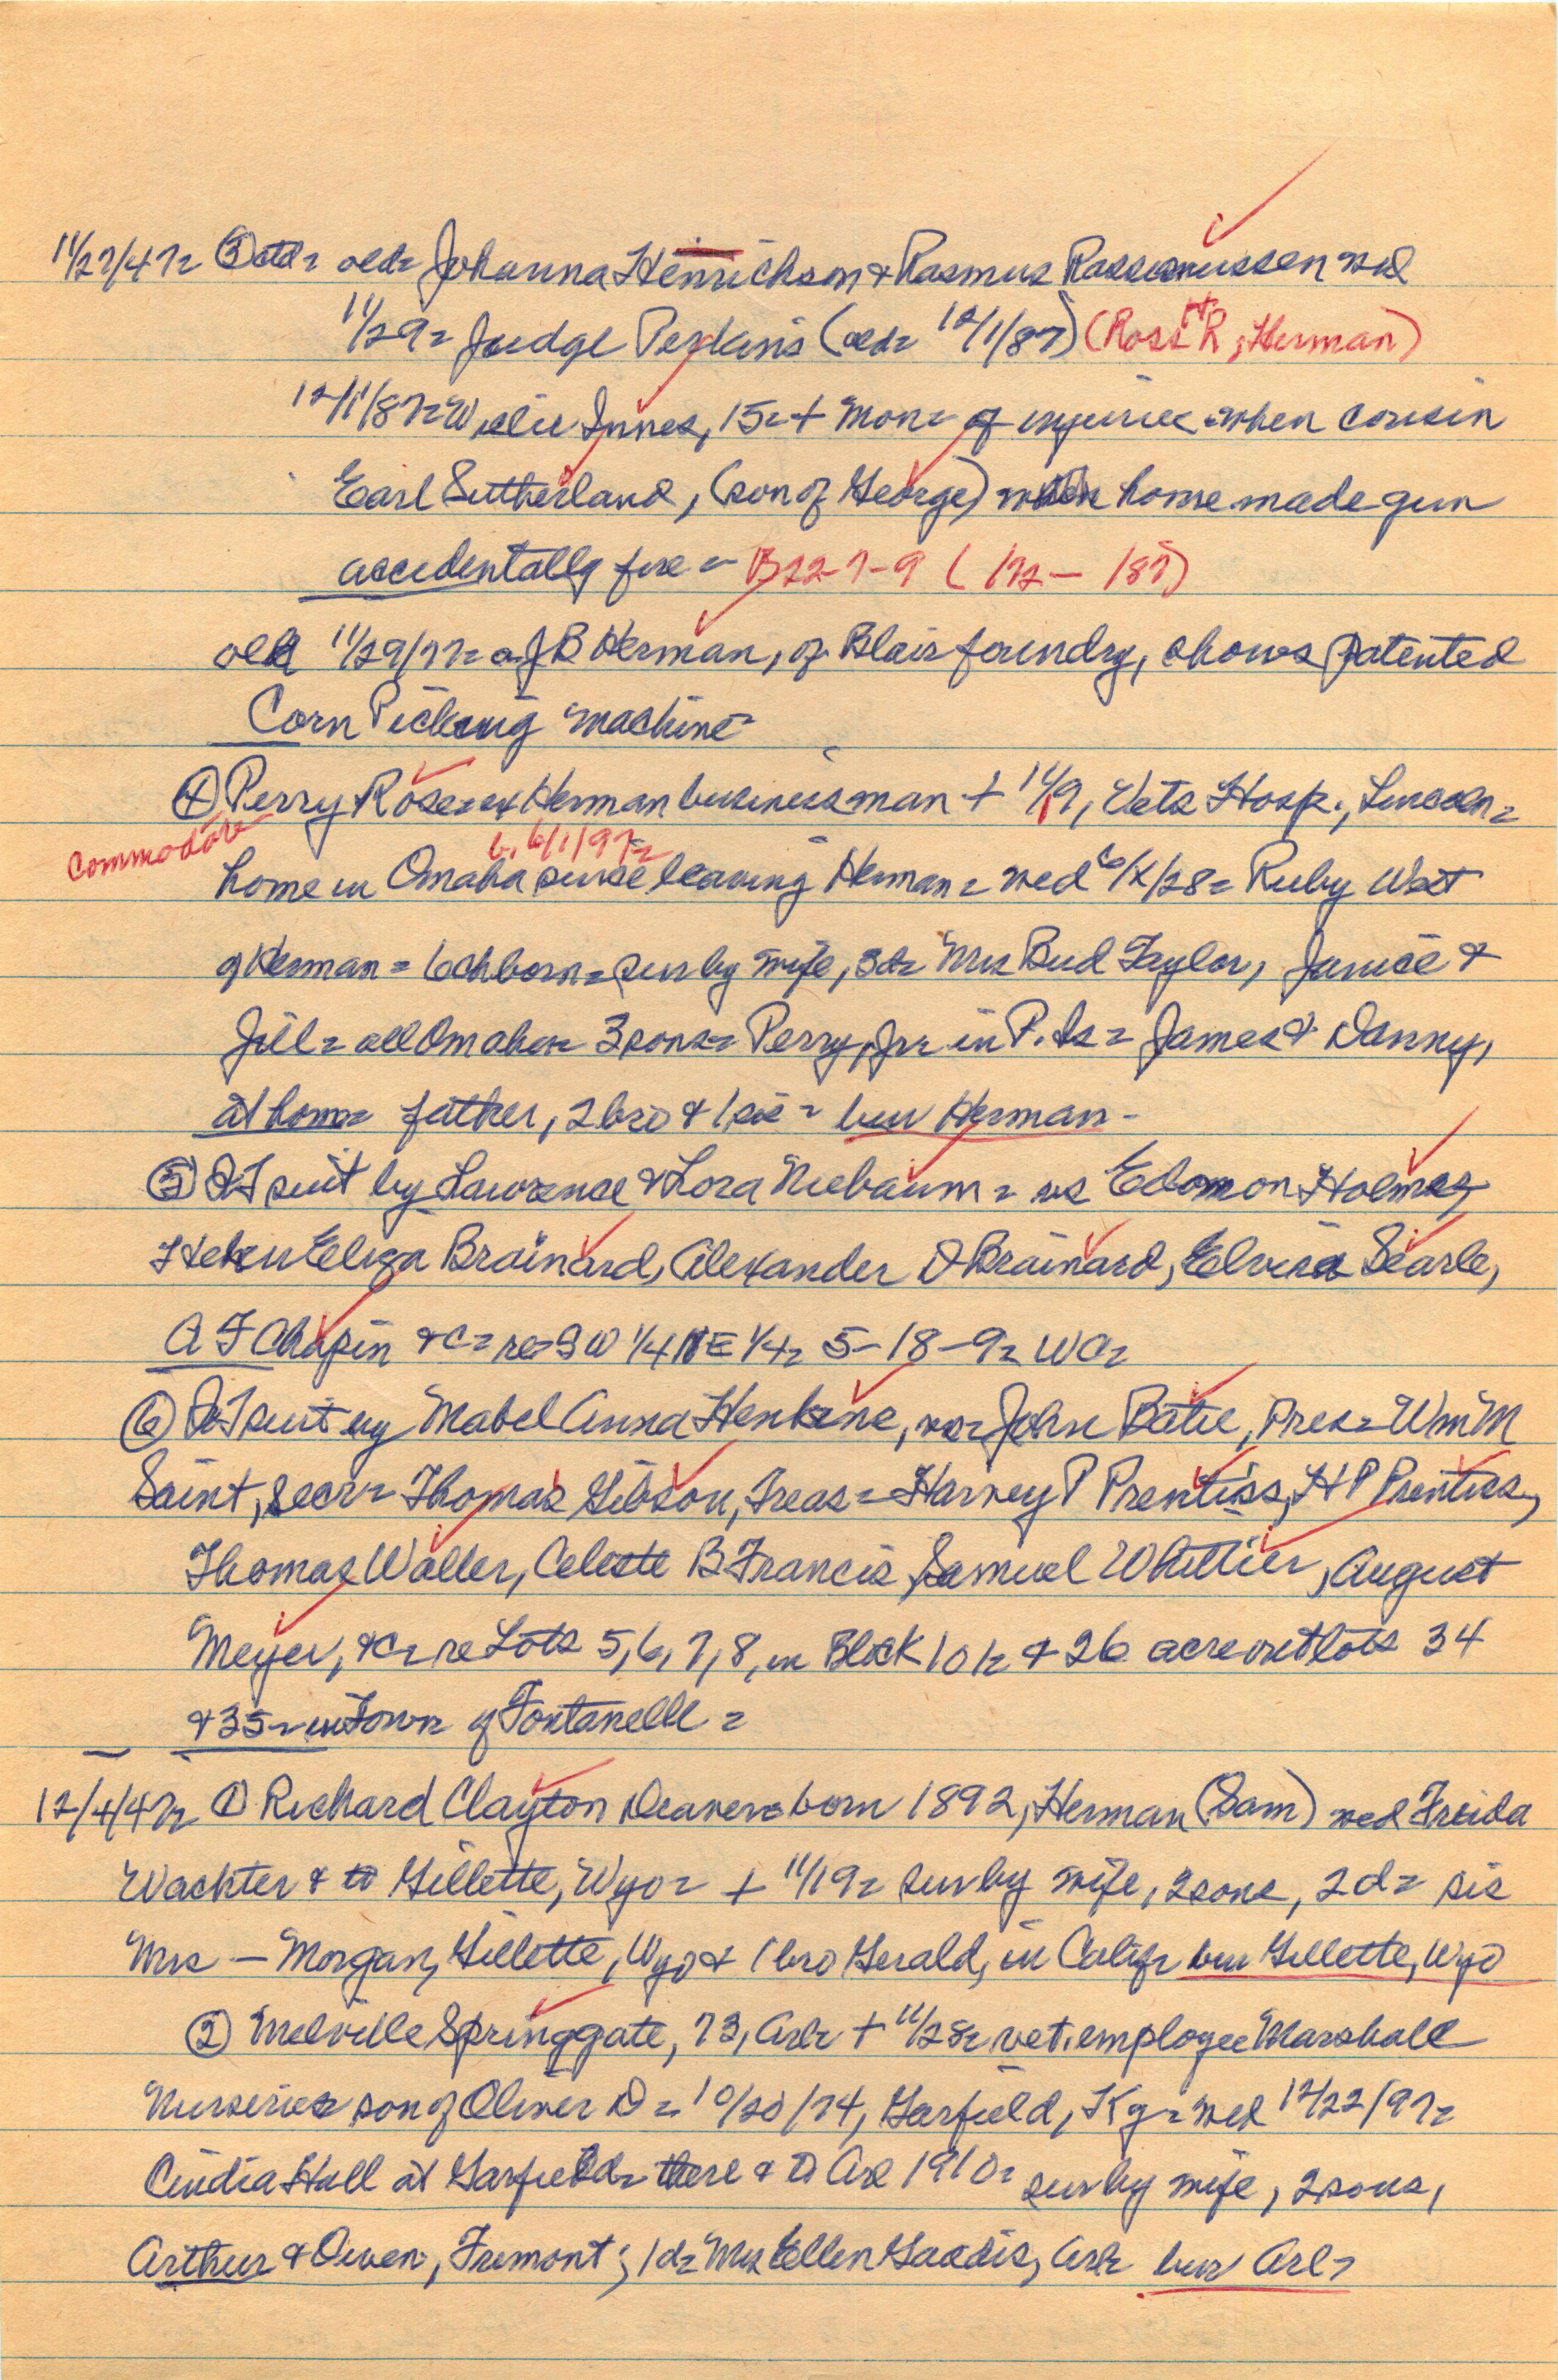 11/27/47= ③ ctd= old= Johanna Henrickson & Rasmus Rassmussen wed
11/29= Judge Perkins (old= 12/1/87) (Ross R, Herman)
12/1/87= Willie Innes, 15= + Mon= of injuries when cousin
Earl Sutherland, (son of George) home made gun
accidentally fire = B22-7-9 (172 - 187)
old 11/29/77= J B Herman, of Blair foundry, shows patented
Corn Picking machine
④ Perry Rose= ex Herman businessman + 11/19, Vets Hosp., Lincoln=
Commodore b, 6/1/97=
home in Omaha since leaving Herman= wed 6/X/28= Ruby West
of Herman = 6 ch born= sur by wife, 3d= Mrs Bud Taylor, Janice &
Jill= all Omaha= 3 sons= Perry, Jr= in P. Is= James & Danny,
at home= father, 2 bro & 1 sis = bur Herman -
⑤ QT suit by Lawrence & Lora Niebaum= vs Edmon Holmes,
Helen Eliza Brainard, Alexander D Brainard, Elvira Searle,
A F Chapin &C= re= SW 1/4 NE 1/4= 5-18-9= WC=
⑥ QT suit by Mabel Anna Henkens, vs= John Batie, Pres= Wm M
Saint, Secr= Thomas Gibson, Treas= Harvey P Prentiss, H P Prentiss,
Thomas Waller, Celeste B Francis, Samuel Whittier, August
Meyer, &C= re Lots 5, 6, 7, 8, in Block 101= & 26 acre outlots 34
& 35= in Town of Fontanelle =
12/4/47= ① Richard Clayton Deaver= born 1892, Herman (Sam) wed Freida
Wachter & to Gillette, Wyo= + 11/19= sur by wife, 2 sons, 2 d= sis
Mrs - Morgan, Gillette, Wyo & 1 bro Gerald, in Calif= bur Gillette, Wyo
② Melville Springgate, 73, Arl= + 11/28= vet. employee Marshall
Nurseries= son of Oliver D= 10/20/74, Garfield, Ky= wed 12/22/97=
Cindia Hall at Garfield= there & to Arl 1910= sur by wife, 2 sons,
Arthur & Owen, Fremont; 1 d= Mrs Ellen Gaddis, Arl= bur Arl=